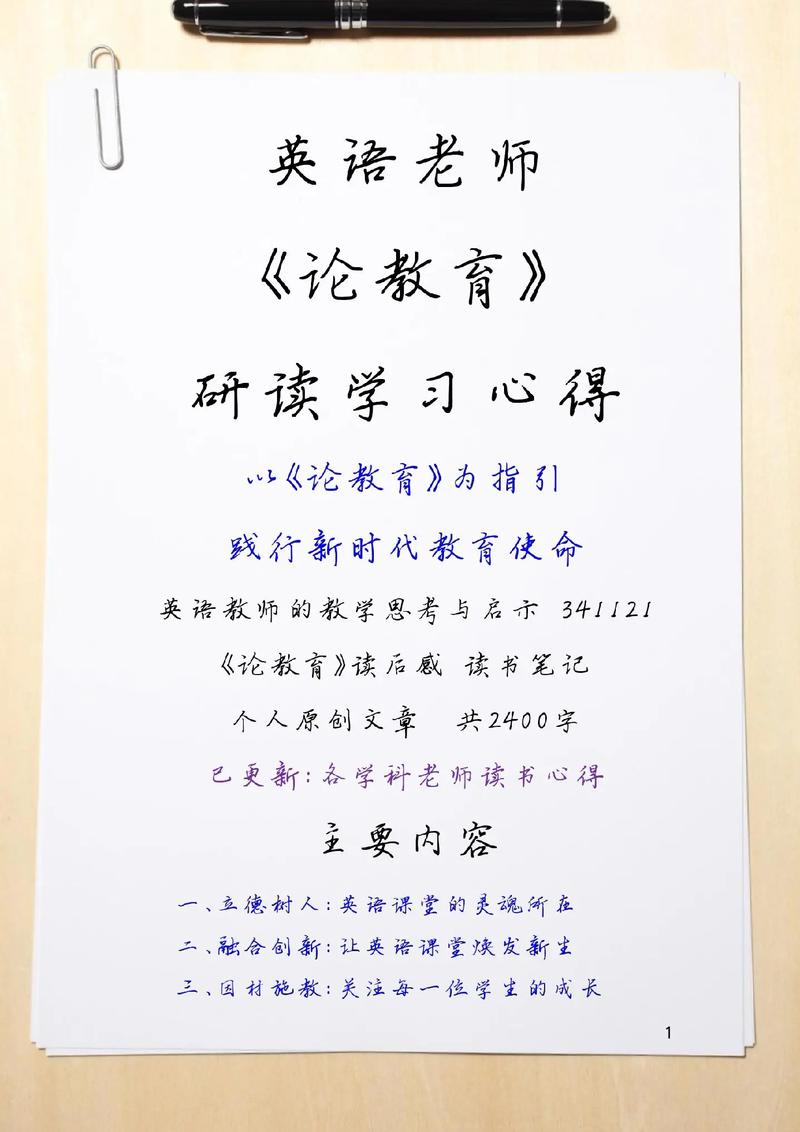 英语老师
《论教育》
研读学习心得
以《论教育》为指引
践行新时代教育使命
英语教师的教学思考与启示 341121
《论教育》读后感 读书笔记
个人原创文章 共2400字
已更新:各学科老师读书心得
主要内容
一、立德树人:英语课堂的灵魂所在
二、融合创新:让英语课堂焕发新生
三、因材施教:关注每一位学生的成长
1